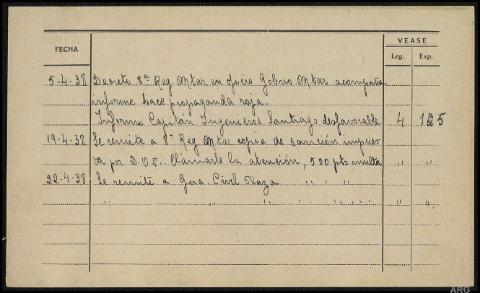 FECHA
VEASE
Leg. Exp.
5-4-38 Decreto 8ª Reg Mtar en oficio Gobno Mtar acompaña
informe hace propaganda roja.
Informe Capitán Ingenieros Santiago desfavorable 4 125
19-4-38 Se remite a 8ª Reg Mtar copia de sanción impues
ta por D.O.P.: llamarle la atención, 500 pts multa " "
22-4-38 Se remite a Gua Civil Plaza " " "
" " " " " " "
ARG